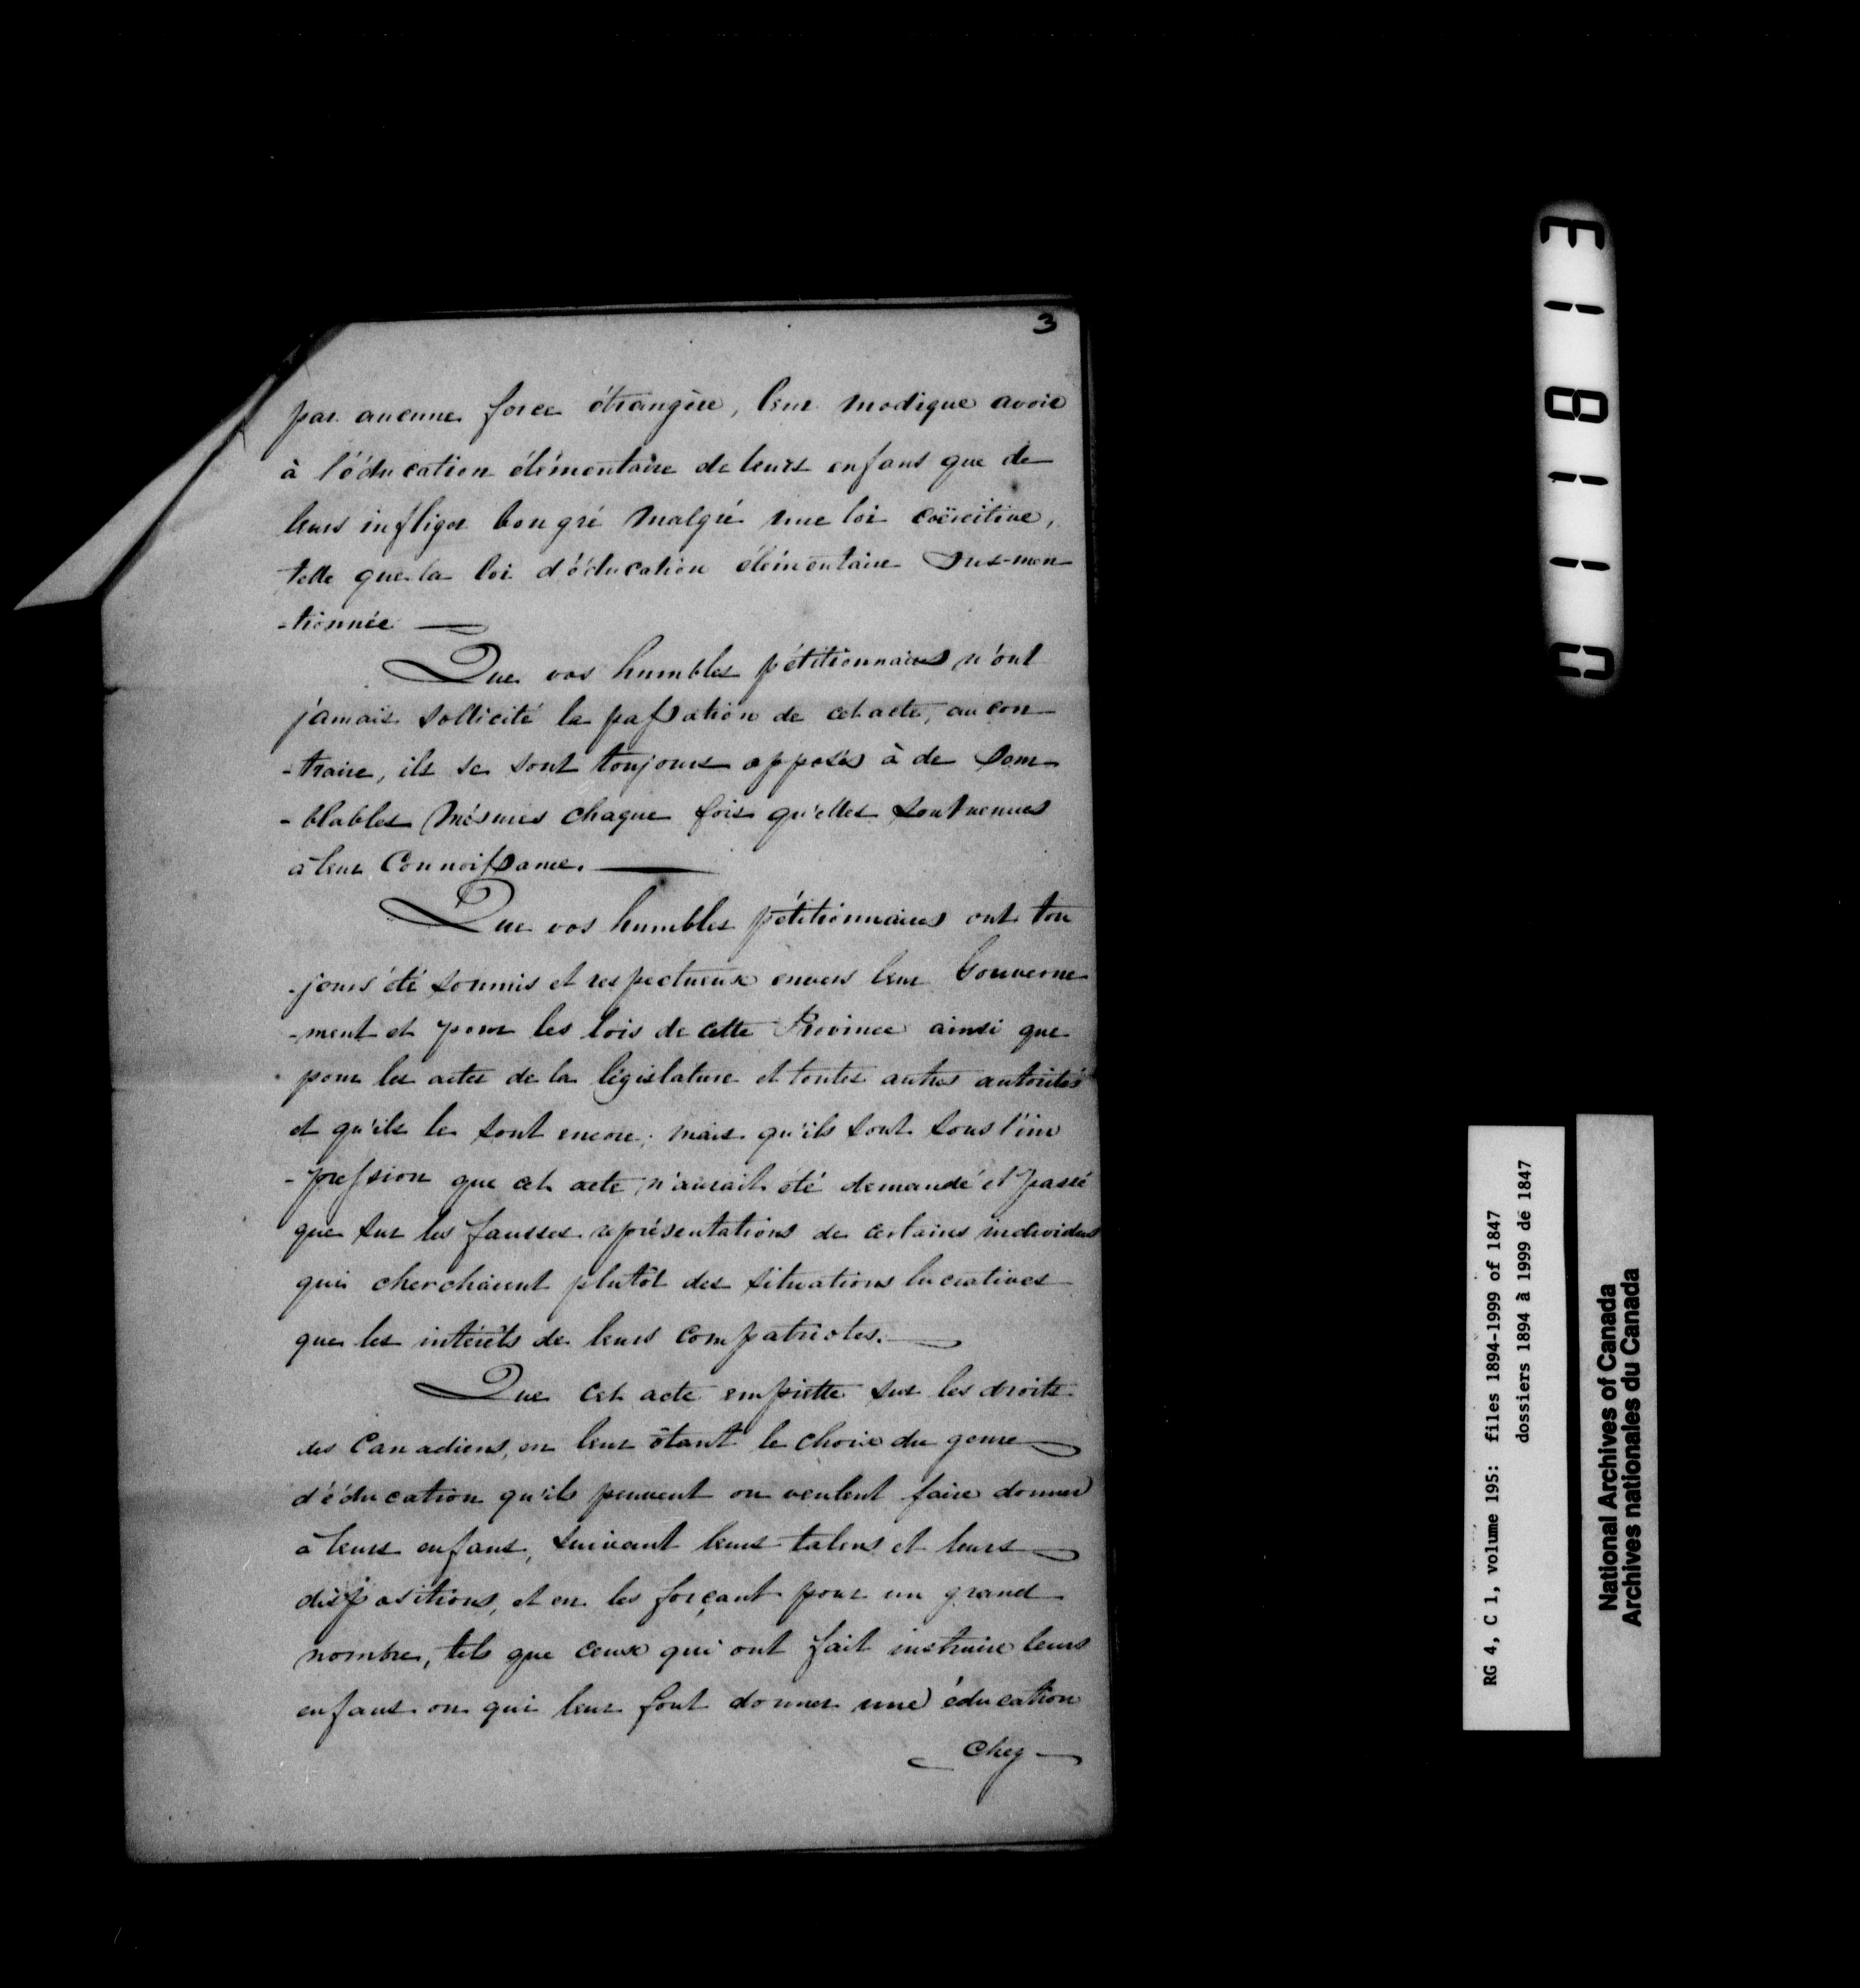 3
par aucune force étrangère, leur modique avoir
à l'éducation élémentaire de leurs enfans que de
leurs infliger bon gré malgré une loi coërcitive,
telle que la loi d'éducation élémentaire sus-men
-tionnée
Que vos humbles pétitionnaires n'ont
jamais sollicité la passation de cet acte, au con
-traire, ils se sont toujours opposés à de sem
-blables mésures chaque fois qu'elles sont venues
à leur connoissance.
Que vos humbles pétitionnaires ont tou
-jours été soumis et respectueux envers leur Gouverne
-ment et pour les lois de cette Province ainsi que
pour les actes de la législature et toutes autres autorités
et qu'ils le sont encore; mais qu'ils sont sous l'im
-pression que cet acte n'aurait été demandé et passé
que sur les fausses représentations de certains individus
qui cherchaient plutôt des situations lucratives
que les intérêts de leurs compatriotes.
Que cet acte empiette sur les droits
des Canadiens, en leur ôtant le choix du genre
d'éducation qu'ils peuvent ou veulent faire donner
à leurs enfans, suivant leurs talens et leurs
dispositions, et en les forçant pour un grand
nombre, tels que ceux qui ont fait instruire leurs
enfans ou qui leur font donner une éducation
chez
C 1 1 8 1 3
RG 4, C 1, volume 195: files 1894-1999 of 1847
dossiers 1894 à 1999 de 1847
National Archives of Canada
Archives nationales du Canada